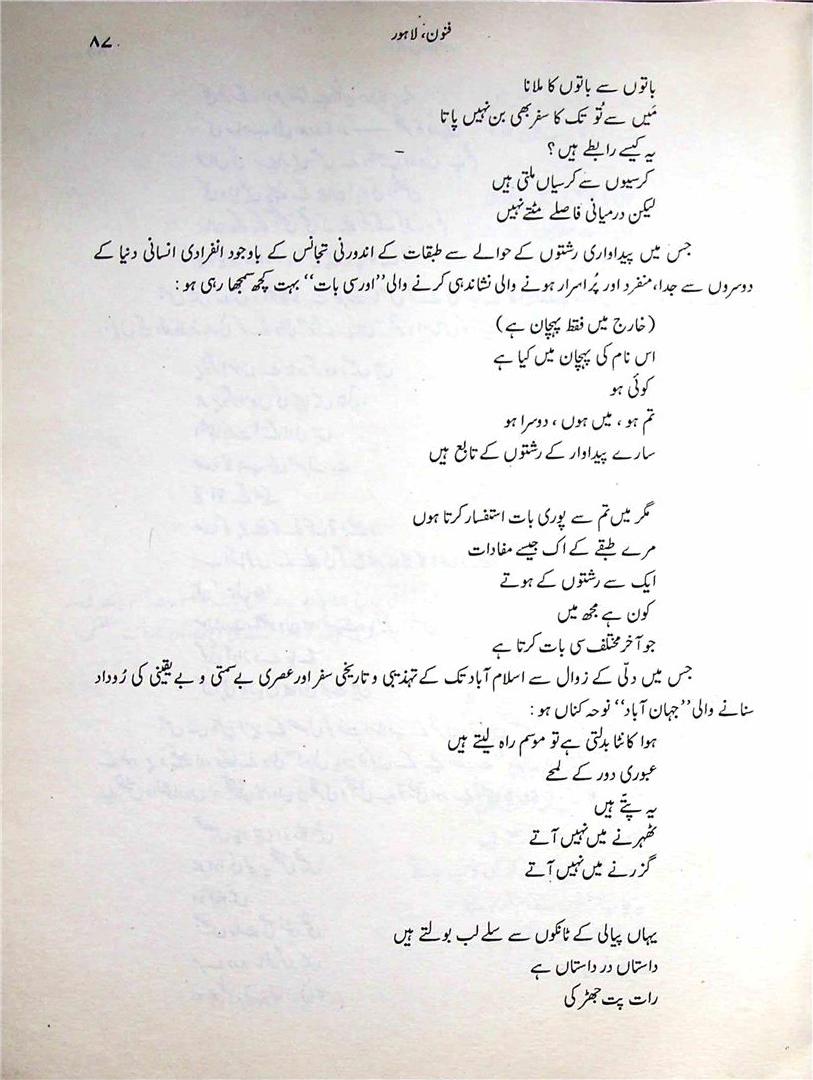 فنون، لاہور
۸۷
باتوں سے باتوں کا ملانا
مَیں سے تُو تک کا سفر بھی بن نہیں پاتا
یہ کیسے رابطے ہیں؟
کرسیوں سے کرسیاں ملتی ہیں
لیکن درمیانی فاصلے مٹتے نہیں
جس میں پیداواری رشتوں کے حوالے سے طبقات کے اندورنی تجانس کے باوجود انفرادی انسانی دنیا کے
دوسروں سے جدا، منفرد اور پُراسرار ہونے والی نشاندہی کرنے والی ’’اور سی بات‘‘ بہت کچھ سمجھا رہی ہو:
(خارج میں فقط پہچان ہے)
اس نام کی پہچان میں کیا ہے
کوئی ہو
تم ہو، میں ہوں، دوسرا ہو
سارے پیداوار کے رشتوں کے تابع ہیں
مگر میں تم سے پوری بات استفسار کرتا ہوں
مرے طبقے کے اک جیسے مفادات
ایک سے رشتوں کے ہوتے
کون ہے مجھ میں
جو آخر مختلف سی بات کرتا ہے
جس میں دلّی کے زوال سے اسلام آباد تک کے تہذیبی و تاریخی سفر اور عصری بے سمتی و بے یقینی کی رُوداد
سنانے والی ’’جہان آباد‘‘ نوحہ کناں ہو:
ہوا کانٹا بدلتی ہے تو موسم راہ لیتے ہیں
عبوری دور کے لمحے
یہ پتّے ہیں
ٹھہرنے میں نہیں آتے
گزرنے میں نہیں آتے
یہاں پیالی کے ٹانکوں سے سلے لب بولتے ہیں
داستاں در داستاں ہے
رات پت جھڑ کی